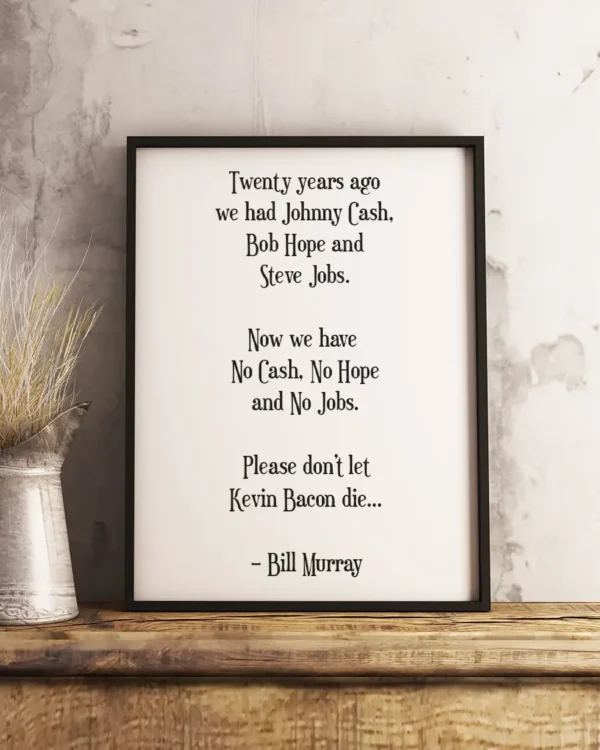 Twenty years ago
we had Johnny Cash,
Bob Hope and
Steve Jobs.
Now we have
No Cash, No Hope
and No Jobs.
Please don't let
Kevin Bacon die...
- Bill Murray